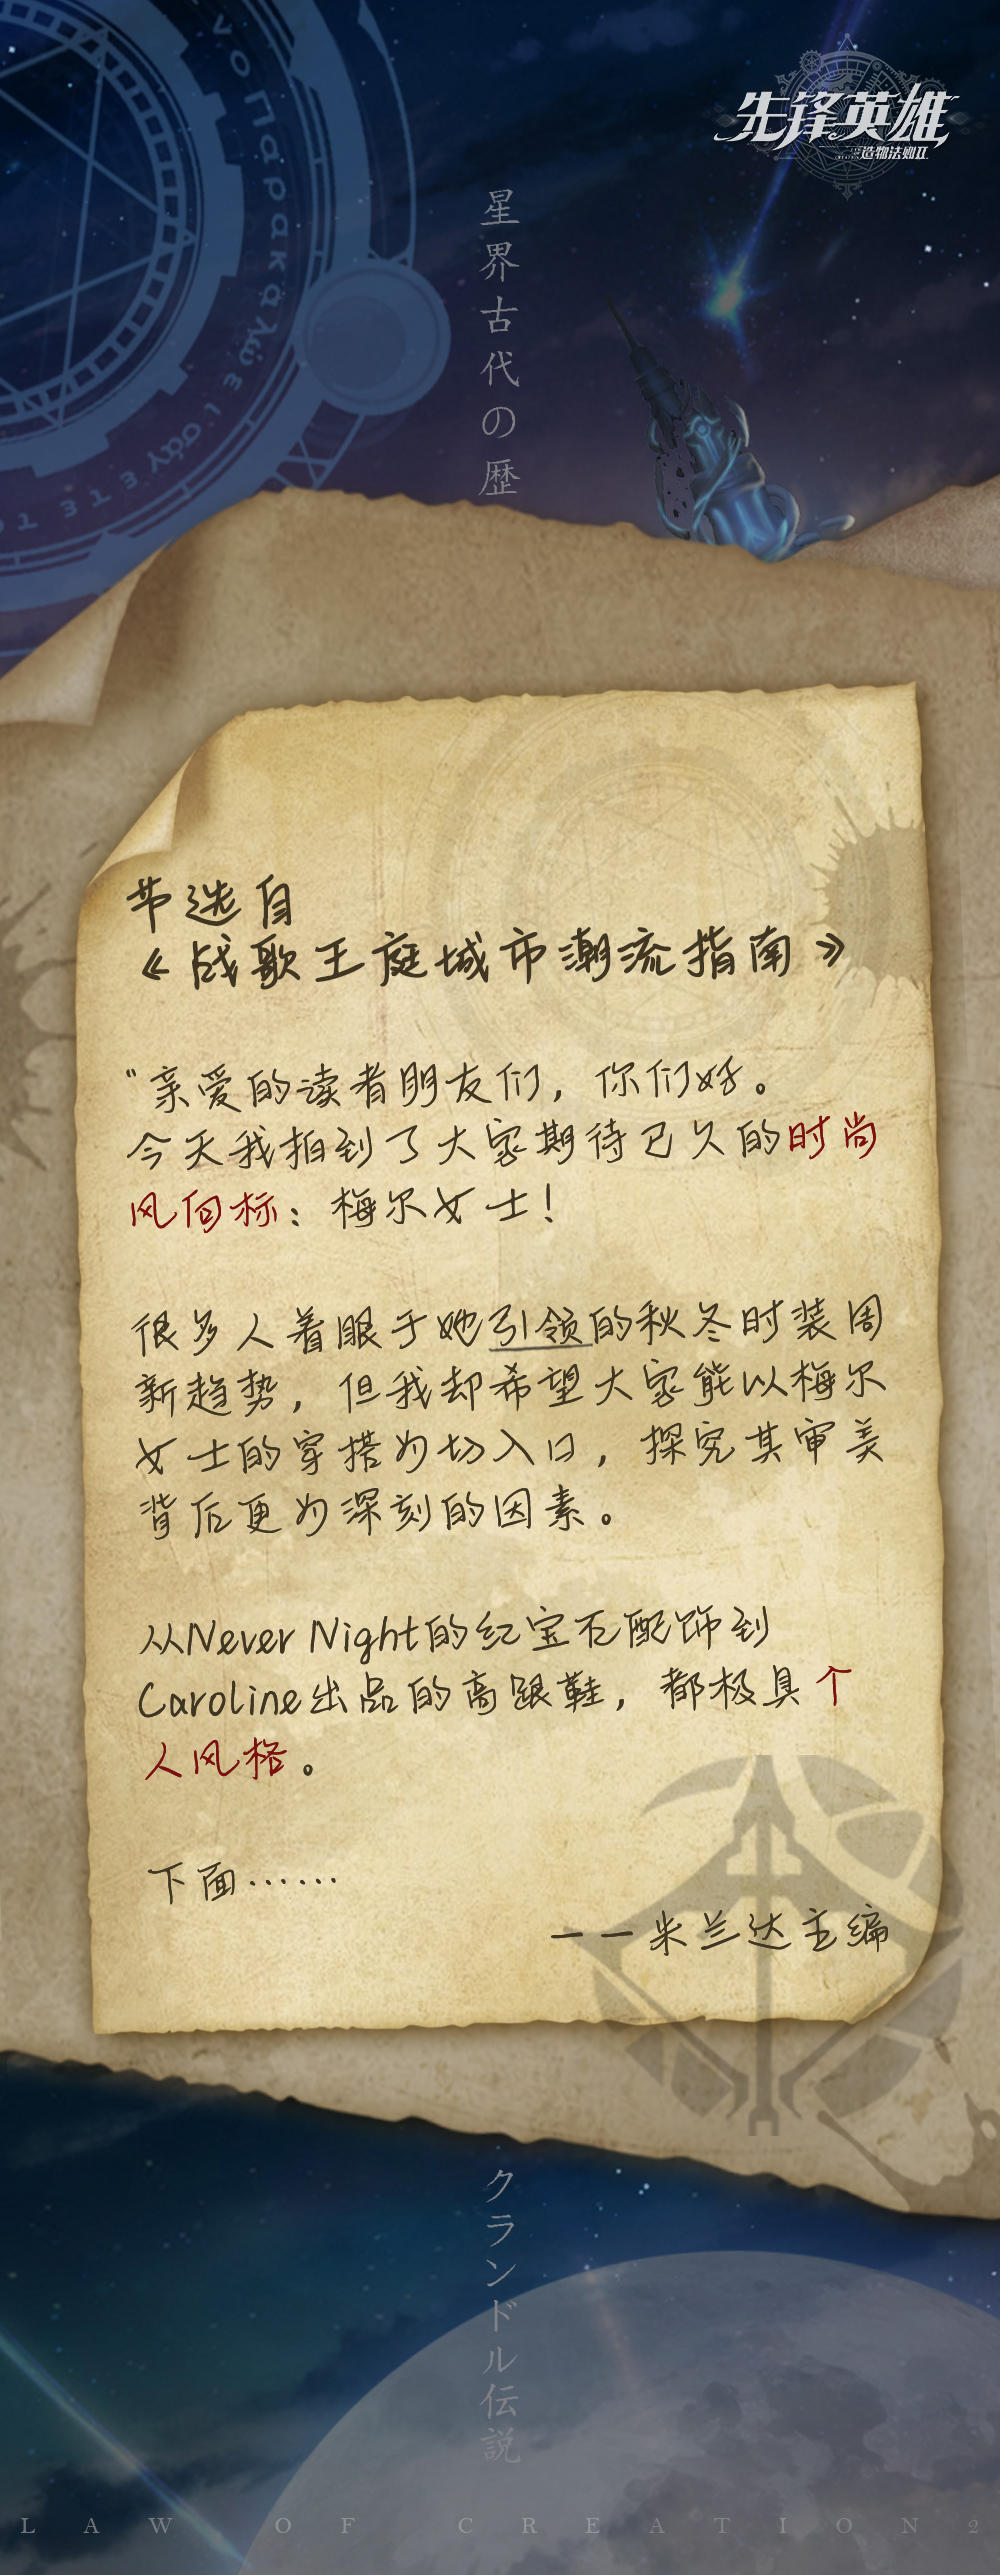 先锋英雄
造物法则II
星界古代の歴
节选自
《战歌王庭城市潮流指南》
“亲爱的读者朋友们，你们好。
今天我拍到了大家期待已久的时尚
风向标：梅尔女士！
很多人着眼于她引领的秋冬时装周
新趋势，但我却希望大家能以梅尔
女士的穿搭为切入口，探究其审美
背后更为深刻的因素。
从Never Night的红宝石配饰到
Caroline出品的高跟鞋，都极具个
人风格。
下面……
——米兰达主编
クランドル伝説
LAW OF CREATION2